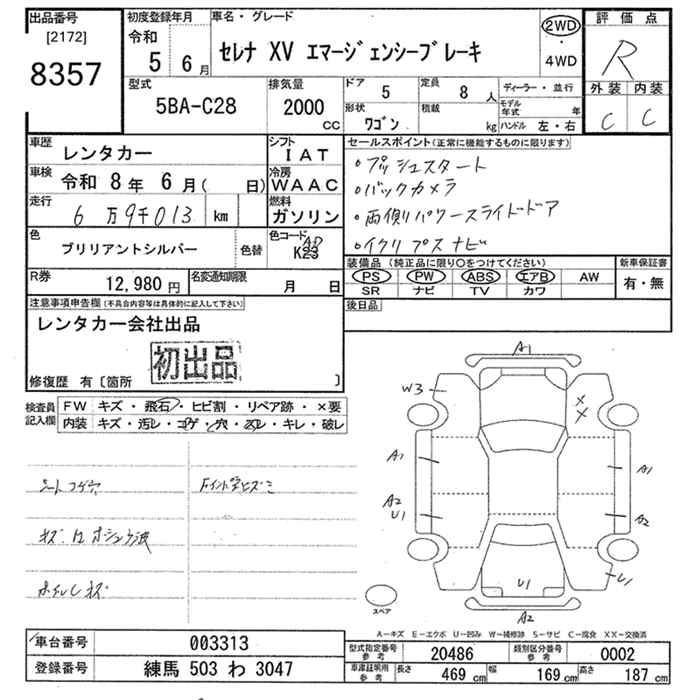 出品番号
[2172]
8357
初度登録年月
令和
5 6月
車名・グレード
セレナ XV エマージェンシーブレーキ
2WD
・
4WD
評価点
R
外装 内装
C C
型式
5BA-C28
排気量
2000
CC
ドア 5
定員 8 人
形状 ワゴン
積載 kg
ディーラー・並行
モデル年式 年
ハンドル 左・右
車歴 レンタカー
シフト IAT
車検 令和 8年 6月( 日)
冷房 WAAC
走行 6万9千013 km
燃料 ガソリン
色 ブリリアントシルバー
色替
色コード
K23
R券 12,980円
名変通知期限 月 日
セールスポイント(正常に機能するものに限ります)
・プッシュスタート
・バックカメラ
・両側パワースライドドア
・イクリプスナビ
装備品 (純正品に限り〇をつけてください)
新車保証書
PS PW ABS エアB AW
SR ナビ TV カワ
有・無
後日品
注意事項申告欄(不具合内容等は具体的に記入して下さい)
レンタカー会社出品
初出品
修復歴 有〔箇所 〕
検査員記入欄
FW キズ・飛石・ヒビ割・リペア跡・×要
内装 キズ・汚レ・コゲ・穴・スレ・キレ・破レ
シートコゲ穴
ホイルキズ
A1
W3
A1
A2
U1
A1
A2
U1
U1
A2
スペア
A-キズ E-エクボ U-凹み W-補修跡 S-サビ C-腐食 XX-交換済
車台番号 003313
登録番号 練馬 503 わ 3047
型式指定番号 参考 20486
類別区分番号 参考 0002
車庫証明用 参考
長さ 469 cm
幅 169 cm
高さ 187 cm